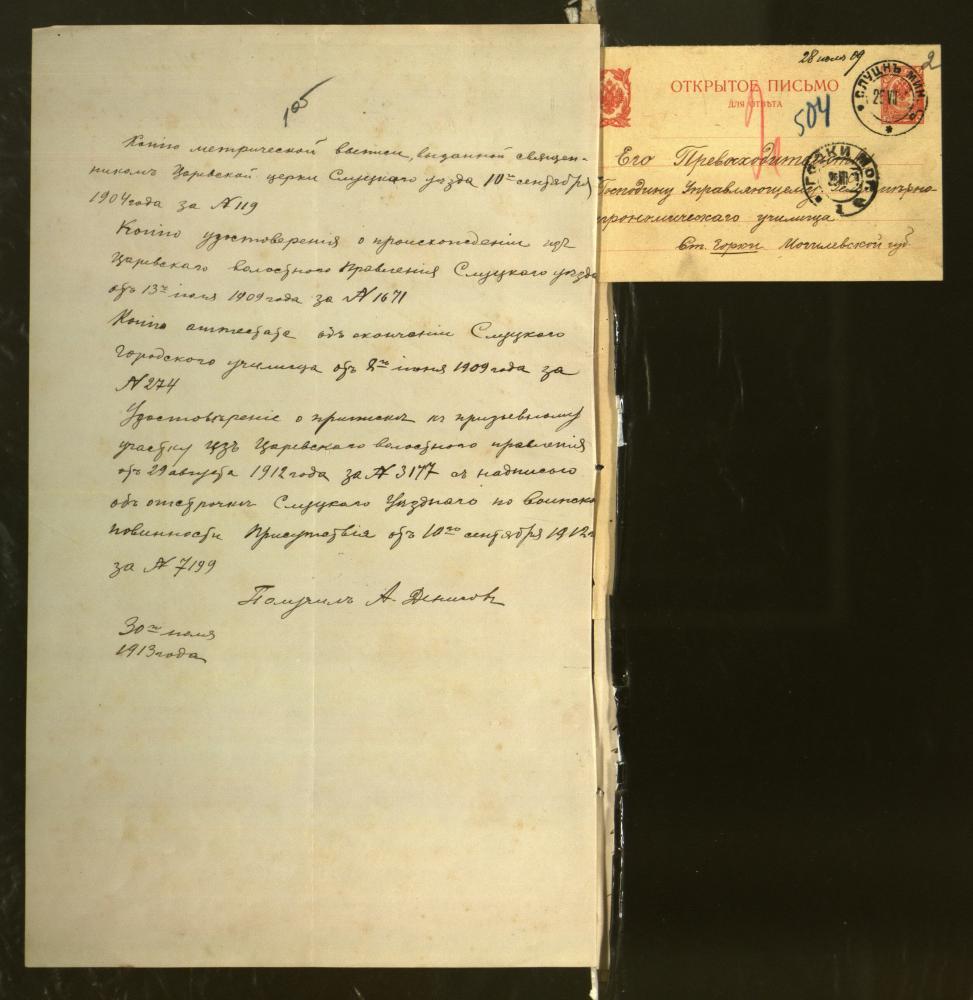 105
Копію метрической выписи, выданной священ-
никомъ Царевской церкви Слуцкаго уѣзда 10го сентября
1904 года за №119
Копію удостоверенія о происхожденіи изъ
Царевскаго волостного Правленія Слуцкаго уѣзда
отъ 13го іюля 1909 года за №1671
Копію аттестата объ окончаніи Слуцкаго
Городского училища отъ 8го іюня 1909 года за
№274
Удостовѣреніе о припискѣ къ призывному
участку изъ Царевскаго волостного правленія
отъ 29 августа 1912 года за №3177 съ надписью
объ отсрочкѣ Слуцкаго Уѣзднаго по воинско
повинности Присутствія отъ 10го сентября 1912г
за №7199
Получилъ А. Денисовъ
30го іюля
1913 года
28 іюля 09
2
ОТКРЫТОЕ ПИСЬМО
ДЛЯ ОТВѢТА
504
СЛУЦКЪ МИН.
ГОРКИ МОГ.
Его Превосходительств
Господину Управляющему
училища
Ст. Горки Могилевской губ